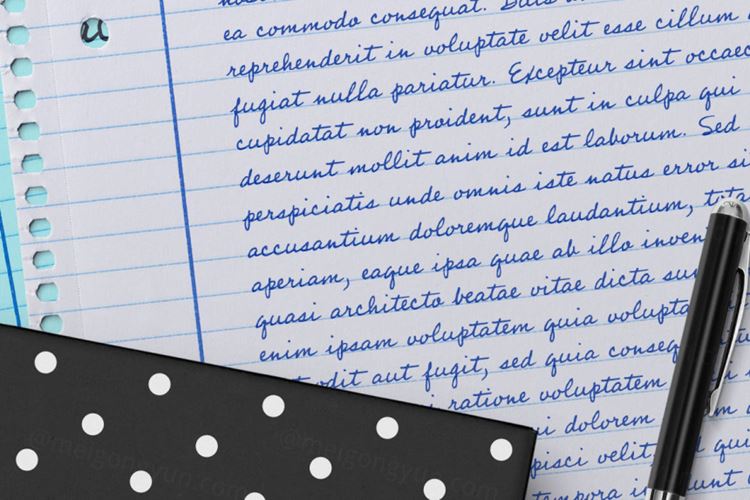 u
ea commodo consequat. Duis
reprehenderit in voluptate velit esse cillum
fugiat nulla pariatur. Excepteur sint occaec
cupidatat non proident, sunt in culpa qui
deserunt mollit anim id est laborum. Sed
perspiciatis unde omnis iste natus error si
accusantium doloremque laudantium, tota
aperiam, eaque ipsa quae ab illo inven
quasi architecto beatae vitae dicta sun
enim ipsam voluptatem quia volupta
odit aut fugit, sed quia conseq
ratione voluptatem
ui dolorem
pisci velit, qui
tempora in unt
@meigongyun.com